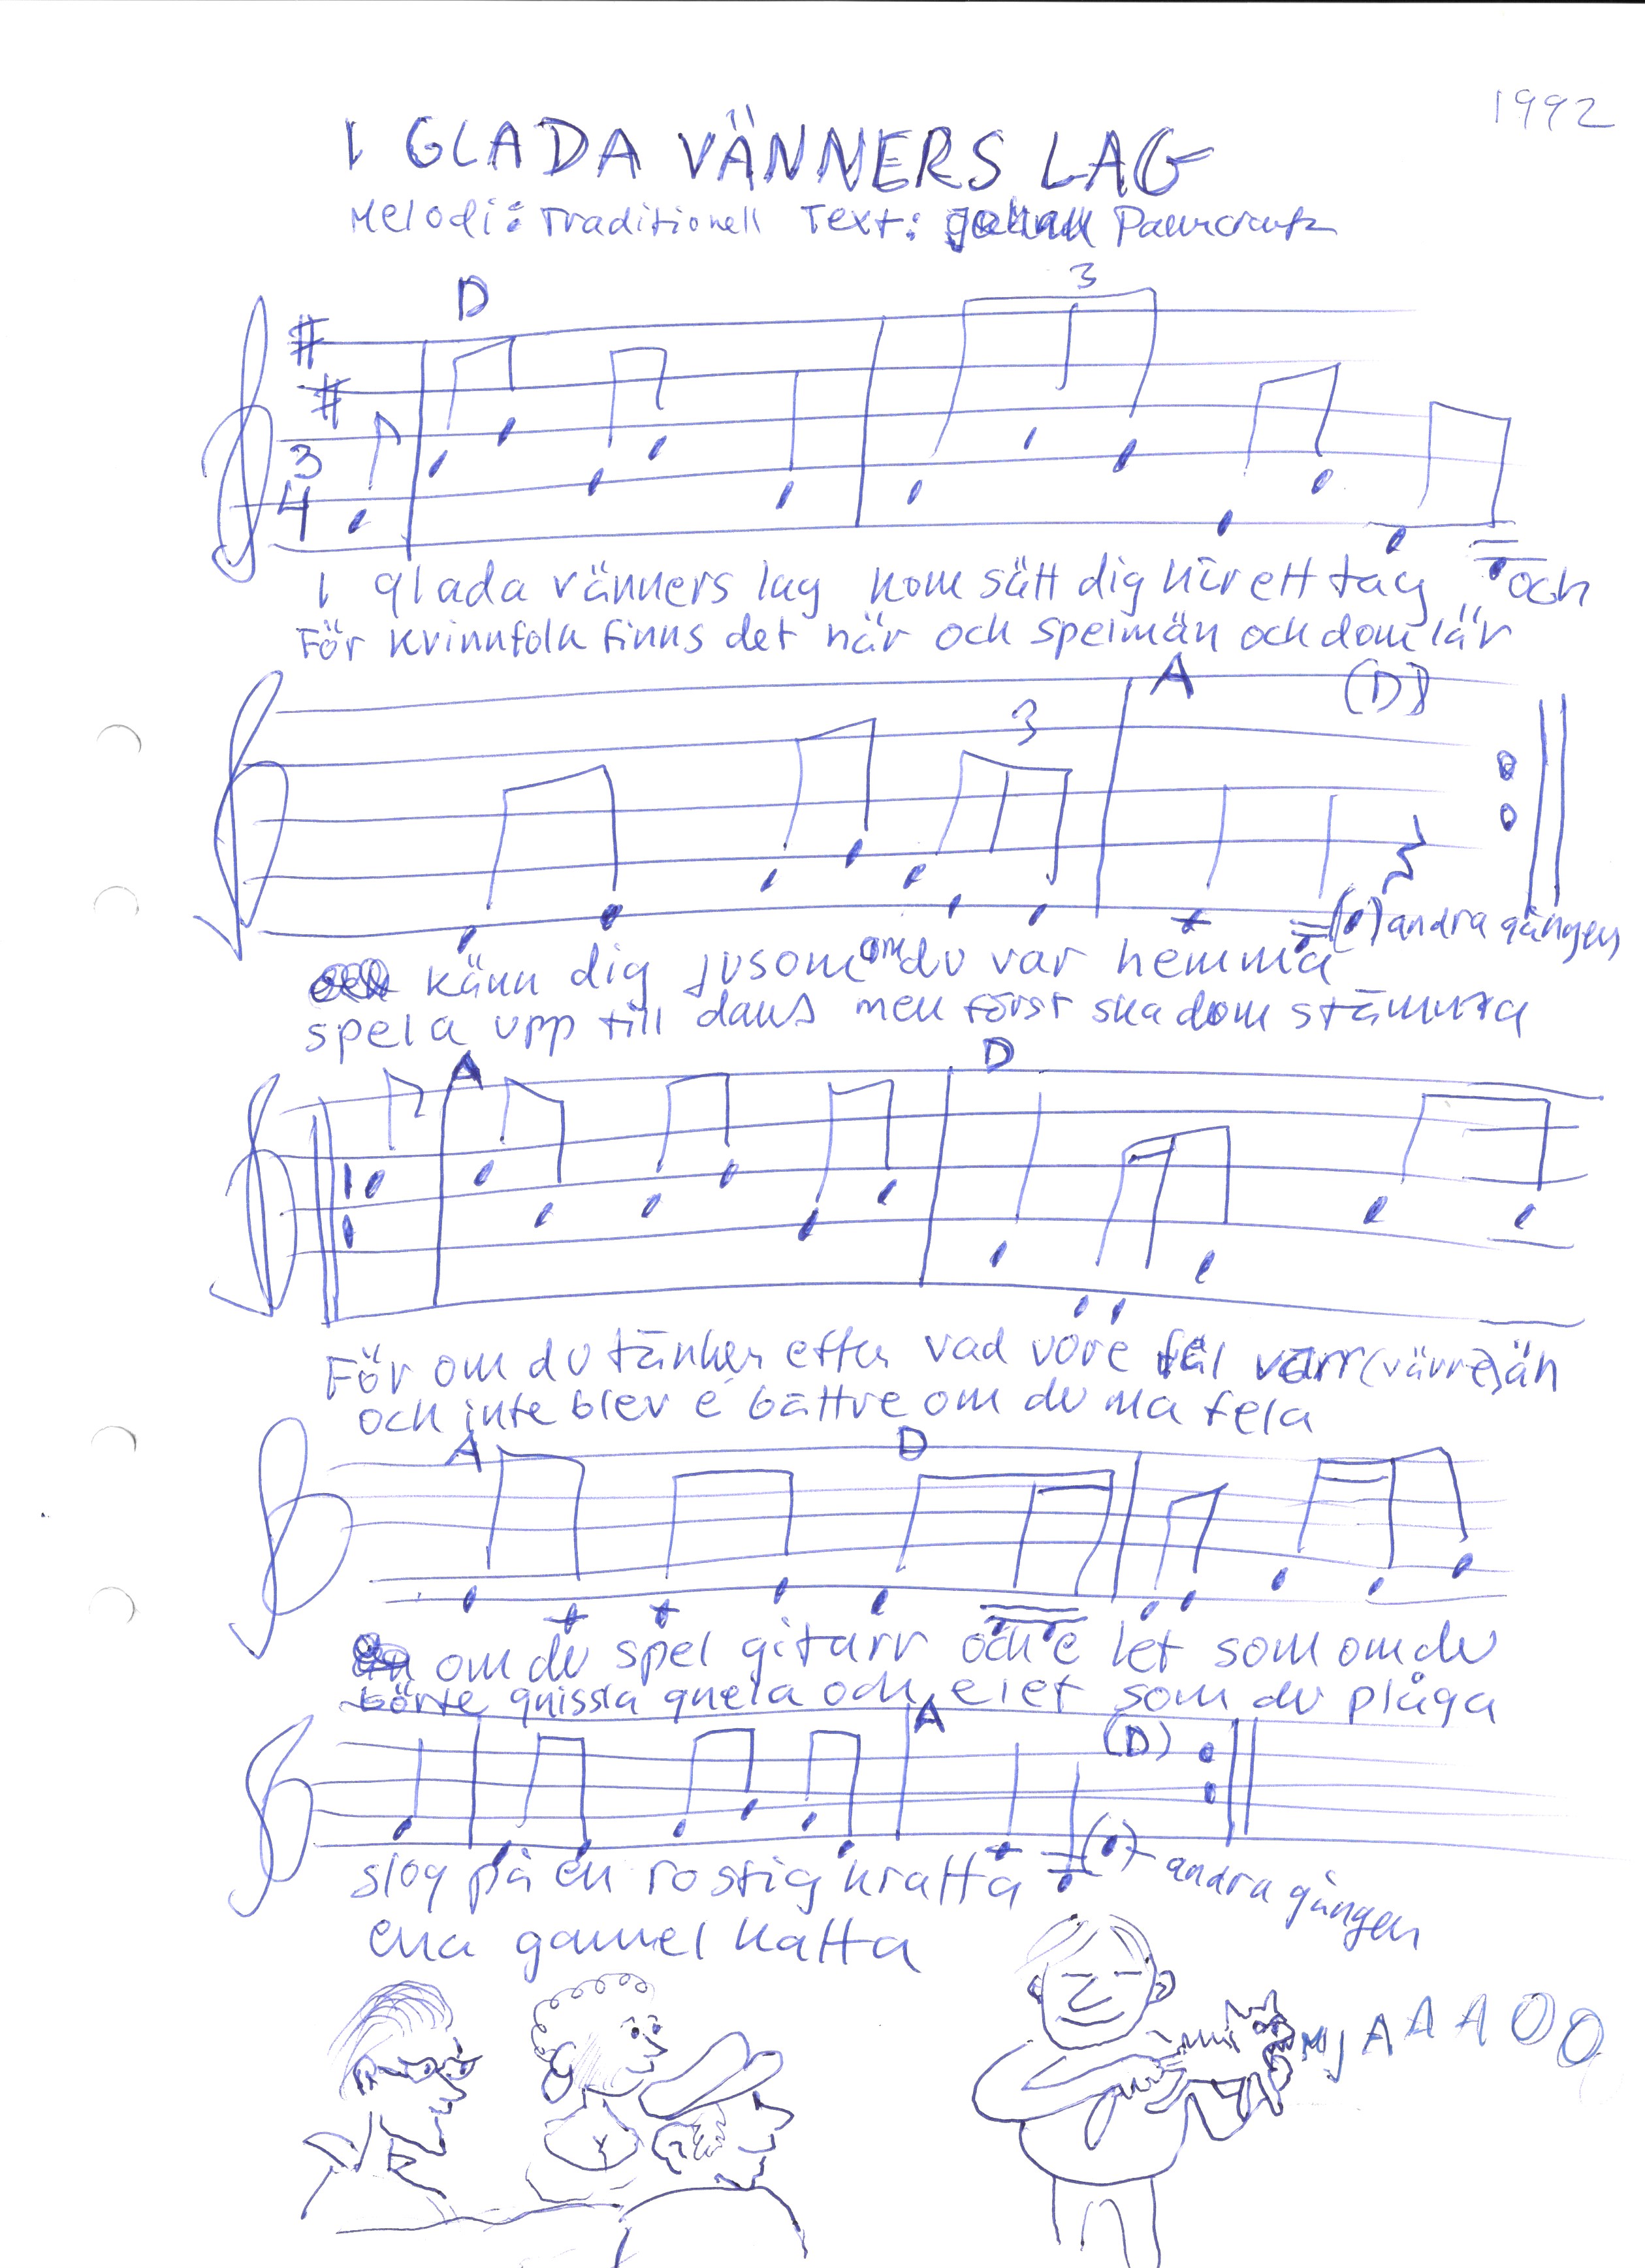 1992
I GLADA VÄNNERS LAG
Melodi: Traditionell Text: Johan
D
3
3
4
I glada vänners lag kom sätt dig här ett tag och
För kvinnfolk finns det här och spelmän och dom lär
A (D)
3
(•) andra gången
känn dig jusom om du var hemma
spela upp till dans men först ska dom stämma
A D
För om du tänker efter vad vore fäl värr (värre) än
och inte blev e bättre om du na fela
A D
om du spel gitarr och e let som om du
börte gnissla gnela och e let som du plåga
A (D)
(•) andra gången
slog på en rostig kratta
ena gammel katta
MJAAAOO